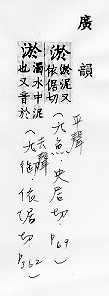 廣韻
淤 淤泥又
依倨切
平聲
(九魚·央居切)
P.69
淤 濁水中泥
也又音於
去聲
(九御·依倨切)
P.362